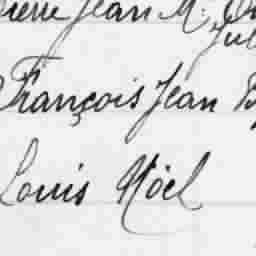 Pierre Jean M.
Jul
François Jean
Louis Nöel